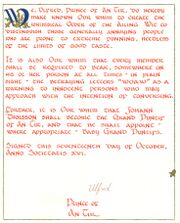 We, Alfred, Prince of An Tir, do hereby
make known our wish to create the
Universal Order of the Ailing Wit to
distinguish those generally annoying people
who are prone to extreme punning, heedless
of the limits of good taste.
It is also our wish that every member
shall be required to wear, somewhere on
his or her person at all times - in plain
sight - the betraying letters "UOAW" as a
warning to innocent persons who may
approach with the intention of conversing.
Further, it is our wish that Johann
shall become the Grand Punly
of An Tir, and that he shall appoint -
where appropriate - Baby Grand Punlys.
Signed this seventeenth day of October,
Anno Societatis XVI.
Alfred
Prince of
An Tir